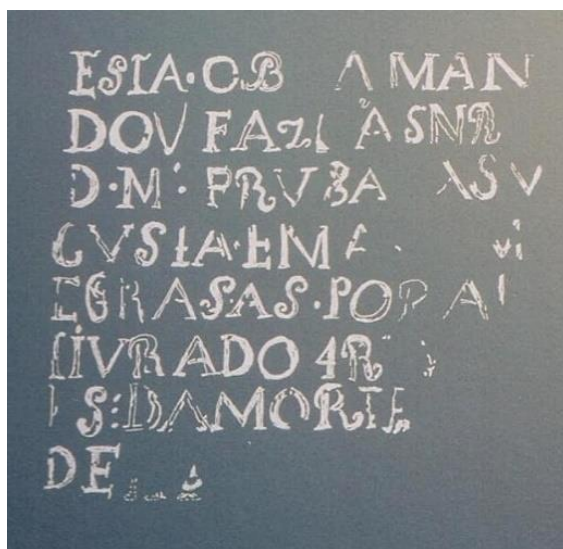 ESTA·OB A MAN
DOV FAZ A SNR
D·M: PRVBA ASV
CVSTA·EM
EGRASAS·POR
LIVRADO 4R
S:DAMORTE
DE